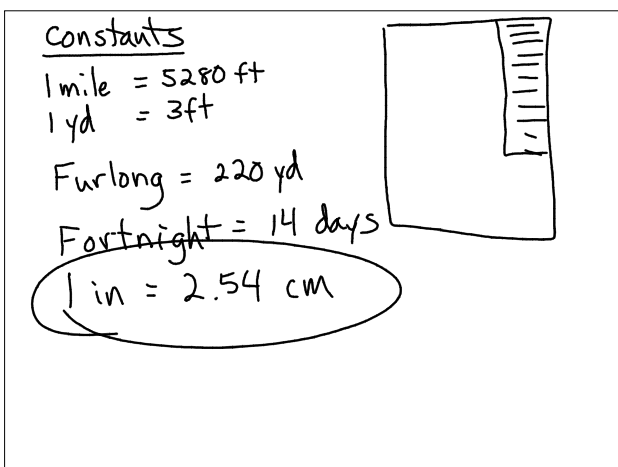 Constants
1 mile = 5280 ft
1 yd = 3ft
Furlong = 220 yd
Fortnight = 14 days
1 in = 2.54 cm